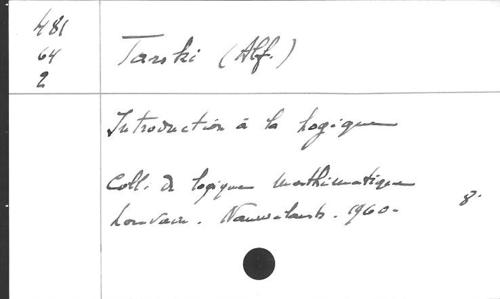 481
64
2
Tarski (Alf.)
Introduction à la logique
Coll. de logique mathématique
Louvain. Nauwelaerts. 1960. 8°